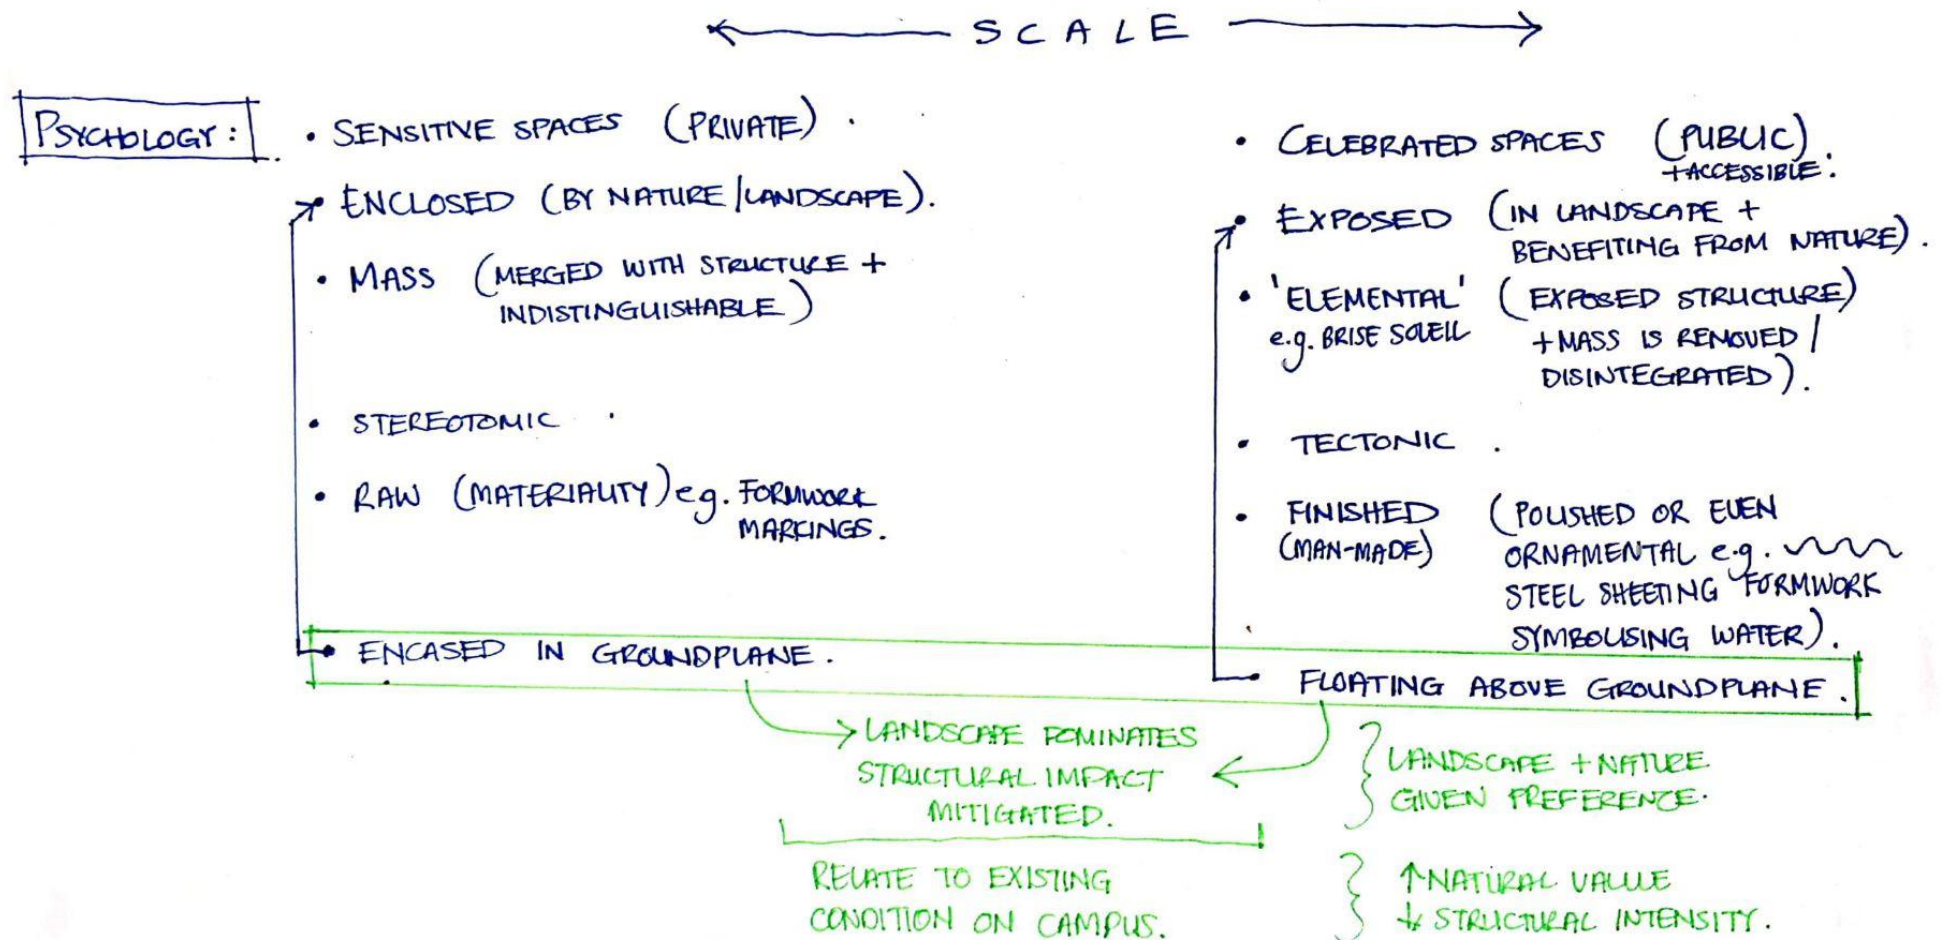 ← SCALE →
PSYCHOLOGY:
• SENSITIVE SPACES (PRIVATE).
ENCLOSED (BY NATURE/LANDSCAPE).
• MASS (MERGED WITH STRUCTURE +
INDISTINGUISHABLE)
• STEREOTOMIC.
• RAW (MATERIALITY) e.g. FORMWORK
MARKINGS.
• ENCASED IN GROUNDPLANE.
• CELEBRATED SPACES (PUBLIC)
+ACCESSIBLE.
• EXPOSED (IN LANDSCAPE +
BENEFITING FROM NATURE).
• 'ELEMENTAL' (EXPOSED STRUCTURE)
e.g. BRISE SOLEIL +MASS IS REMOVED/
DISINTEGRATED).
• TECTONIC.
• FINISHED (POLISHED OR EVEN
(MAN-MADE) ORNAMENTAL e.g.
STEEL SHEETING FORMWORK
SYMBOLISING WATER).
• FLOATING ABOVE GROUNDPLANE.
→ LANDSCAPE DOMINATES
STRUCTURAL IMPACT ←
MITIGATED.
RELATE TO EXISTING
CONDITION ON CAMPUS.
LANDSCAPE + NATURE
GIVEN PREFERENCE.
↑ NATURAL VALUE
↓ STRUCTURAL INTENSITY.